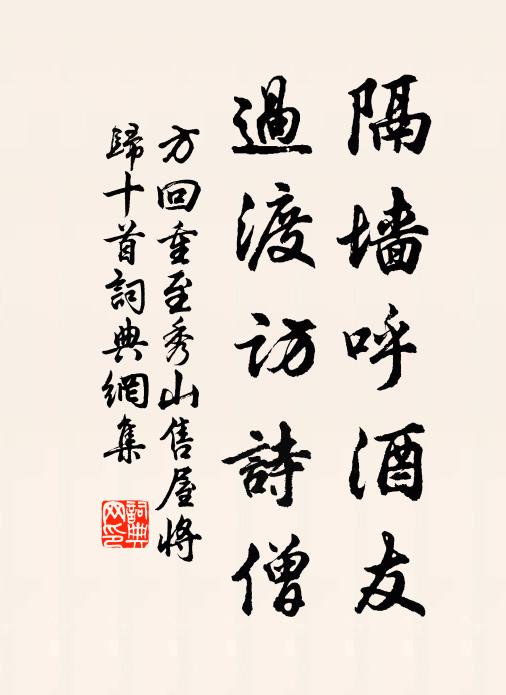 隔墻呼酒友
過渡訪詩僧
方回重至秀山售屋將
歸十首詞典網集
詞典
网印